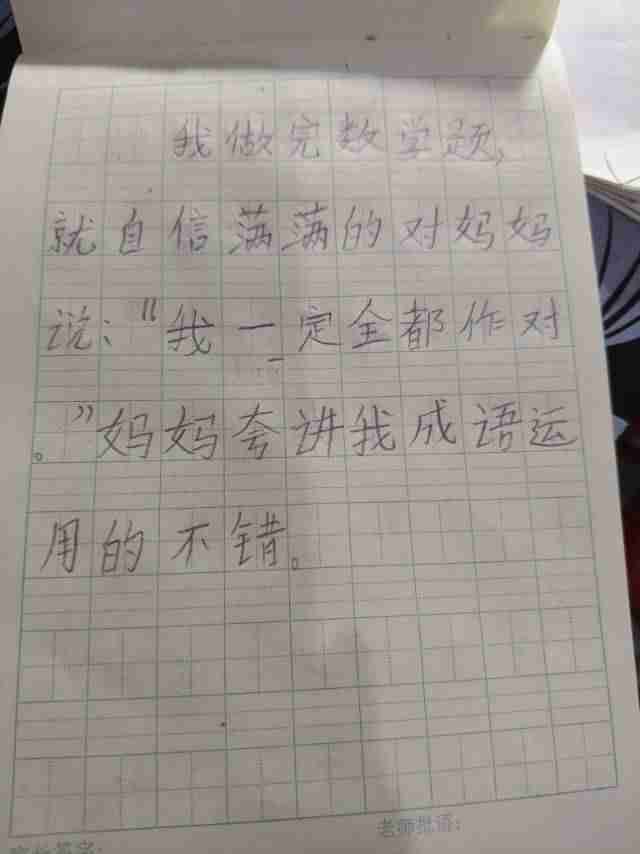 我做完数学题,
就自信满满的对妈妈
说:“我一定全都作对
。”妈妈夸讲我成语运
用的不错。
老师批语:
家长签字: